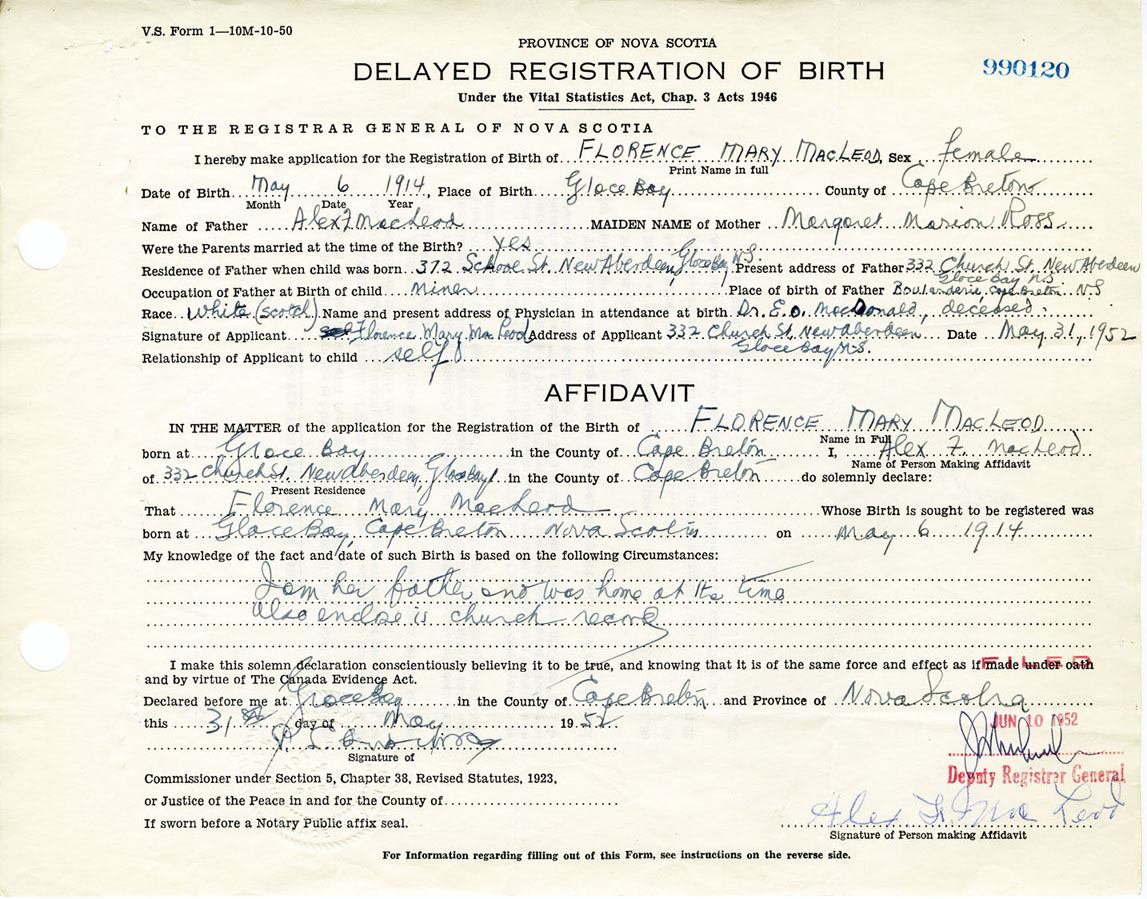 V.S. Form 1—10M-10-50
PROVINCE OF NOVA SCOTIA
DELAYED REGISTRATION OF BIRTH
990120
Under the Vital Statistics Act, Chap. 3 Acts 1946
TO THE REGISTRAR GENERAL OF NOVA SCOTIA
I hereby make application for the Registration of Birth of FLORENCE MARY MACLEOD Sex female
Print Name in full
Date of Birth May 6 1914, Place of Birth Glace Bay County of Cape Breton
Month Date Year
Name of Father Alex F MacLeod MAIDEN NAME of Mother Margaret Marion Ross
Were the Parents married at the time of the Birth? yes
Residence of Father when child was born 372 School St. New Aberdeen, Glace Bay N.S. Present address of Father 332 Church St. New Aberdeen
Glace Bay N.S
Occupation of Father at Birth of child miner Place of birth of Father Boularderie, Cape Breton N.S
Race White (scotch) Name and present address of Physician in attendance at birth Dr. E.O. MacDonald, deceased.
Signature of Applicant Florence Mary MacLeod Address of Applicant 332 Church St, New Aberdeen Date May 31, 1952
Glace Bay N.S.
Relationship of Applicant to child self
AFFIDAVIT
IN THE MATTER of the application for the Registration of the Birth of FLORENCE MARY MACLEOD
Name in Full
born at Glace Bay in the County of Cape Breton I, Alex F. MacLeod
Name of Person Making Affidavit
of 332 Church St. New Aberdeen, Glace Bay in the County of Cape Breton do solemnly declare:
Present Residence
That Florence Mary MacLeod Whose Birth is sought to be registered was
born at Glace Bay, Cape Breton Nova Scotia on May 6 1914
My knowledge of the fact and date of such Birth is based on the following Circumstances:
I am her father and was home at the time
also enclose is church record
I make this solemn declaration conscientiously believing it to be true, and knowing that it is of the same force and effect as if made under oath
FILED
and by virtue of The Canada Evidence Act.
Declared before me at Glace Bay in the County of Cape Breton and Province of Nova Scotia
this 31st day of May 1952
JUN 10 1952
Signature of
Deputy Registrar General
Commissioner under Section 5, Chapter 38, Revised Statutes, 1923,
or Justice of the Peace in and for the County of
Alex F. MacLeod
If sworn before a Notary Public affix seal.
Signature of Person making Affidavit
For Information regarding filling out of this Form, see instructions on the reverse side.